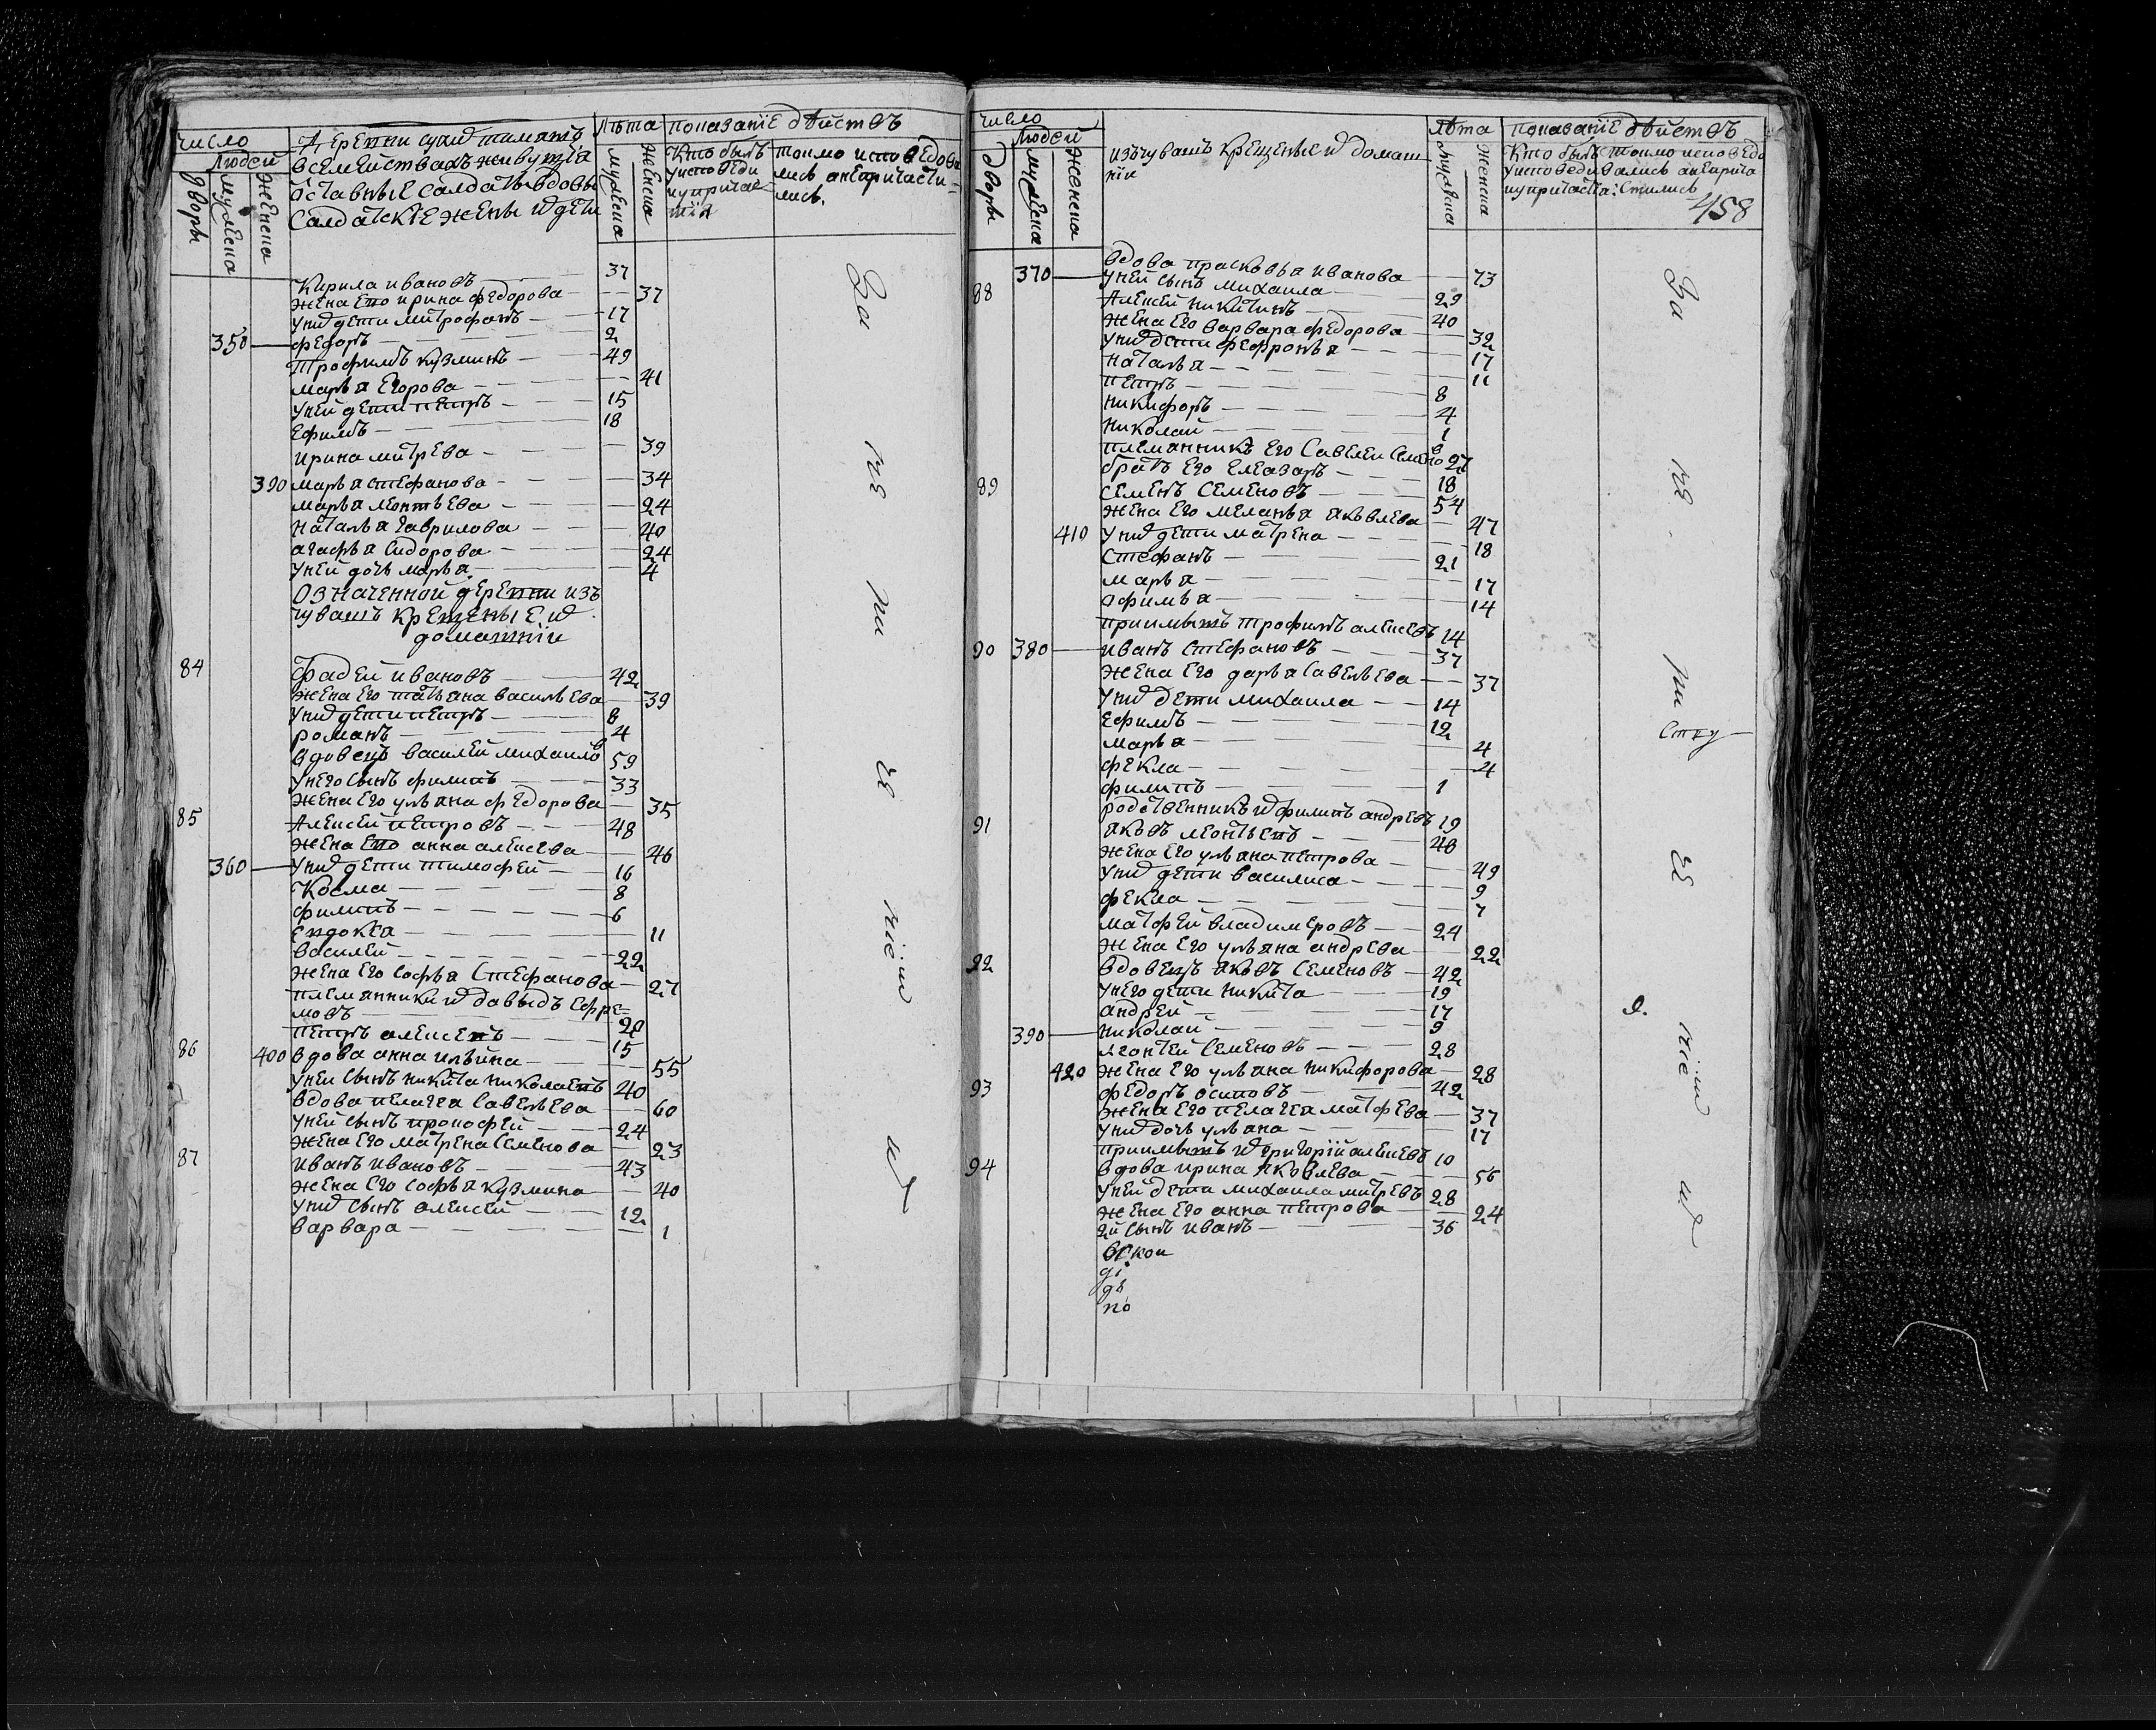 число
Людей
дворы
мужеска
женска
Деревни сухих тимяшъ
в семействахъ живущия
ѡставныe салдаты вдовы
салдатскiе жены и ихъ дети
лѣта
мужеска
женска
показанiе дѣйствъ
Кто былъ у исповеди и у причастия
токмо исповедовались а не причастились
Кирила ивановъ 37
жена его ирина федорова 37
у них дети митрофанъ 17
350 федоръ 2
Трофимъ кузминъ 49
марья егорова 41
у ней дети петръ 15
ефимъ 18
ирина митрева 39
390 марья стефанова 34
марья леонтьева 24
наталья гаврилова 40
агафья сидорова 24
у ней дочь марья 4
Означенной деревни изъ
чувашъ крещеные и их
домашнiи
84 Фадей ивановъ 42
жена его татьяна васильева 39
у них дети петръ 8
романъ 4
вдовецъ василей михайловъ 59
у него сынъ филипъ 33
жена его ульяна федорова 35
85 Алексей петровъ 48
жена его анна алексева 46
360 у них дети тимофей 16
Косма 8
филипъ 6
евдокея 11
василей 22
жена его софья стефанова 27
племянники их давыдъ ефре-
мовъ 20
петръ алексеевъ 15
86 400 вдова анна ильина 55
у ней сынъ никита николаевъ 40
вдова пелагея савельева 60
у ней сынъ прокофей 24
жена его матрена семенова 23
87 иванъ ивановъ 43
жена его софья кузмина 40
у них сынъ алексей 12
варвара 1
число
Людей
дворы
мужеска
женска
изъ чувашъ крещеные и их домаш
нiи
лѣта
мужеска
женска
показанiе дѣйствъ
Кто былъ у исповеди и у причастиа
токмо исповедовались а не причастились
458
370 вдова прасковья иванова 73
у ней сынъ михаила 29
88 Алексей никитинъ 40
жена его варвара федорова 32
у них дети фефронья 17
наталья 11
петръ 8
никифоръ 4
николай 1
племянникъ его савелей семеновъ 27
братъ его елеазаръ 18
89 семенъ семеновъ 54
жена его меланья яковлева 47
410 у них дети матрена 18
стефанъ 21
марья 17
афимья 14
приимышъ трофимъ алексеевъ 14
90 380 иванъ стефановъ 37
жена его дарья савельева 37
у них дети михаила 14
ефимъ 12
марья 4
фекла 4
филипъ 1
родственникъ их филипъ андревъ 19
91 яковъ леонтьевъ 48
жена его ульяна петрова 49
у них дети василиса 9
фекла 7
матфей владимеровъ 24
жена его ульяна андрева 22
92 вдовецъ яковъ семеновъ 42
у него дети никита 19
андрей 17
390 николай 9
леонтей семеновъ 28
420 жена его ульяна никифорова 28
93 федоръ осиповъ 42
жена его пелагея матфева 37
у них дочь ульяна 17
приимышъ их григорiй алексеевъ 10
94 вдова ирина яковлева 56
у ней дети михаила митревъ 28
жена его анна петрова 24
2й сынъ иванъ 36